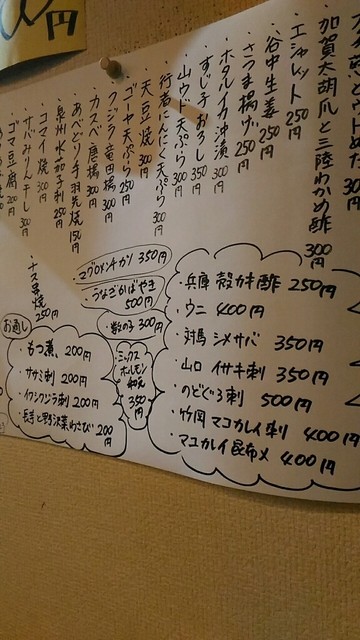 円
加賀太胡瓜と三陸わかめ酢 300円
エシャレット 250円
谷中生姜 250円
さつま揚げ 250円
ホタルイカ沖漬 300円
すじ子おろし 350円
山ウド天ぷら 300円
行者にんにく天ぷら 300円
天豆焼 300円
ゴーヤ天ぷら 250円
クジラ竜田揚 300円
カスベ唐揚 300円
あべどり手羽先焼 150円
泉州水茄子刺 250円
コマイ焼 300円
サバみりん干し 300円
ゴマ豆腐 200円
ナス串焼 250円
マグロメンチカツ 350円
うなぎかばやき 500円
数の子 300円
ミックスホルモン 350円
お通し
・もつ煮 200円
・ササミ刺 200円
・イワシクジラ刺 200円
・長芋と野沢菜わさび 200円
・兵庫 殻カキ酢 250円
・ウニ 400円
・対馬 シメサバ 350円
・山口 イサキ刺 350円
・のどぐろ刺 500円
・竹岡 マコカレイ刺 400円
・マコカレイ昆布〆 400円